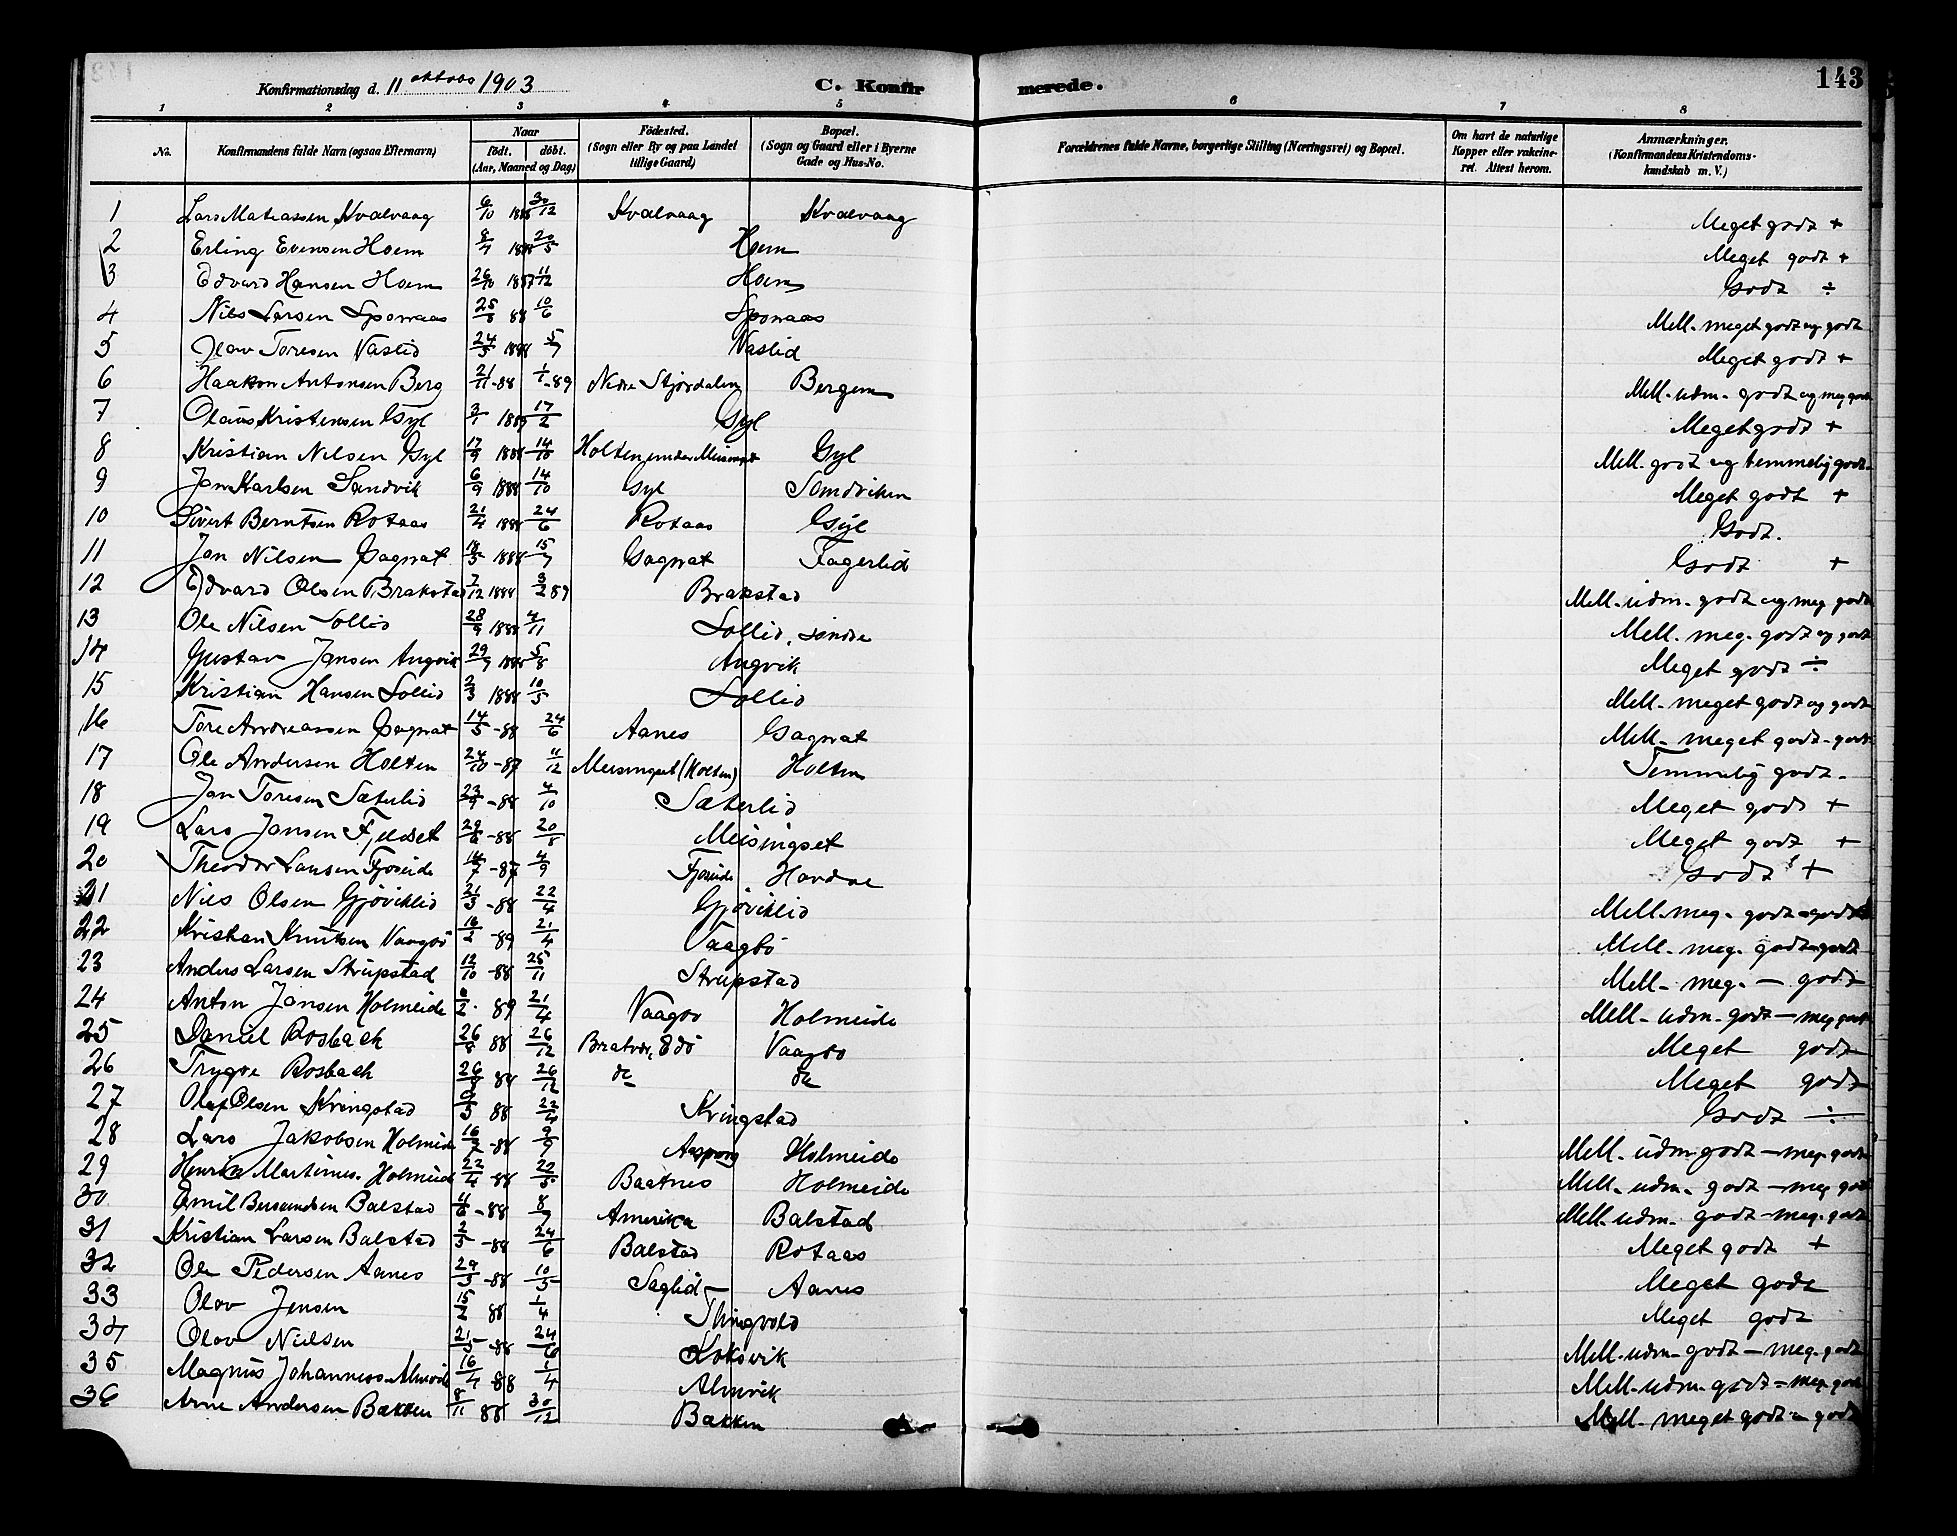 143
Konfirmationsdag d. 11 oktober 1903
C. Konfirmerede.
1 2 3 4 5 6 7 8
No. Konfirmandens fulde Navn (ogsaa Efternavn) Naar födt. döbt. (Aar, Maaned og Dag) Födested. (Sogn eller By og paa Landet tillige Gaard) Bopæl. (Sogn og Gaard eller i Byerne Gade og Hus-No. Forældrenes fulde Navne, borgerlige Stilling (Næringsvei) og Bopæl. Om havt de naturlige Kopper eller vakcineret. Attest herom. Anmærkninger. (Konfirmandens Kristendomskundskab m. V.)
1 Lars Matiassen Kvalvaag 6/10 1888 30/12 Kvalvaag Kvalvaag Meget godt +
2 Erling Evensen Hoem 8/4 1888 20/5 Hoem Meget godt +
3 Edvard Hansen Hoem 26/10 1887 11/12 Hoem Godt ÷
4 Nils Larsen Sporsaas 25/8 88 10/6 Sporsaas Mell. meget godt og godt
5 Olav Toresen Vaslid 24/5 1888 5/7 Vaslid Meget godt +
6 Haakon Antonsen Berg 21/11 -88 1/1 -89 Nedre Stjørdalen Bergem Mell. udm. godt og meg godt
7 Olaus Kristensen Gyl 3/1 1889 17/2 Gyl Meget godt +
8 Kristian Nilsen Gyl 17/9 1888 14/10 Holten under Meisingset Gyl Mell. godt og temmelig godt.
9 Jon Karlsen Sandvik 6/9 1888 14/10 Gyl Sandviken Meget godt +
10 Sivert Berntsen Rotaas 21/4 1888 24/6 Rotaas Gyl Godt.
11 Jon Nilsen Gagnat 18/5 1888 15/7 Gagnat Fagerlid Godt +
12 Edvard Olsen Brakstad 7/12 1888 3/2 89 Brakstad Mell. udm. godt og meg godt
13 Ole Nilsen Sollid 28/9 1888 4/11 Sollid, søndre Mell. meg. godt og godt
14 Gustav Jansen Angvik 29/7 1888 5/8 Angvik Meget godt ÷
15 Kristian Hansen Sollid 2/3 1888 10/5 Sollid Mell. meget godt og godt
16 Tore Andreassen Gagnat 14/5 -88 24/6 Aanes Gagnat Mell. meget godt - godt
17 Ole Andersen Holten 24/10 -87 11/12 Meisingset (Holten) Holten Temmelig godt.
18 Jon Toresen Sæterlid 23/9 -88 4/10 Sæterlid Meget godt +
19 Lars Jansen Fjeldset 29/6 -88 20/8 Meisingset Meget godt +
20 Theodor Larsen Fjøseide 14/7 -87 4/9 Fjøseide Godt +
21 Nils Olsen Gjøviklid 21/3 -88 22/4 Gjøviklid Mell. meg. godt - godt
22 Kristian Knutsen Vaagbø 16/2 -89 21/4 Vaagbø Mell. meg. godt - godt
23 Anders Larsen Strupstad 12/10 -88 25/11 Strupstad Mell. meg. — godt
24 Anton Jansen Holmeide /2 89 21/4 Vaagbø Holmeide Mell. udm. godt — meg godt
25 Daniel Rosbach 26/8 88 26/12 Bratvær, Edö Vaagbø Meget godt
26 Trygve Rosbach 26/8 88 26/12 do do Meget godt
27 Olaf Olsen Kringstad 9/3 88 22/4 Kringstad Godt ÷
28 Lars Jakobsen Holmeide 16/7 -88 9/9 Aspøy Holmeide Mell. udm. godt — meg. godt
29 Henrik Martinus. Holmeide 22/4 -88 22/5 Baatnes Holmeide Mell. udm. godt — meg godt
30 Emil Balstad 4/6 -88 8/7 Amerika Balstad Mell. udm. godt - meg. godt
31 Kristian Larsen Balstad 2/5 -88 24/6 Balstad Rotaas Meget godt +
32 Ole Pedersen Aanes 29/3 -88 10/5 Saglid Aanes Meget godt
33 Olov Jensen 15/2 88 1/4 Thingvold Meget godt
34 Olov Nielsen 21/5 -88 24/6 Koksvik Mell. udm. godt — meg. godt
35 Magnus Johanness. Almvik 16/4 -88 1/4 Almvik Mell. udm. godt - meg. godt
36 Arne Andersen Bakken 8/11 88 30/12 Bakken Mell. meget godt - godt